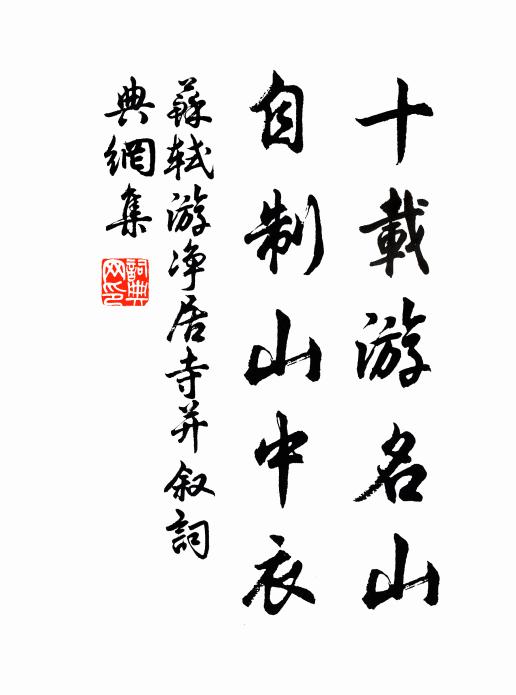 十載游名山
自制山中衣
蘇軾游净居寺并叙詞
典網集
詞典网印